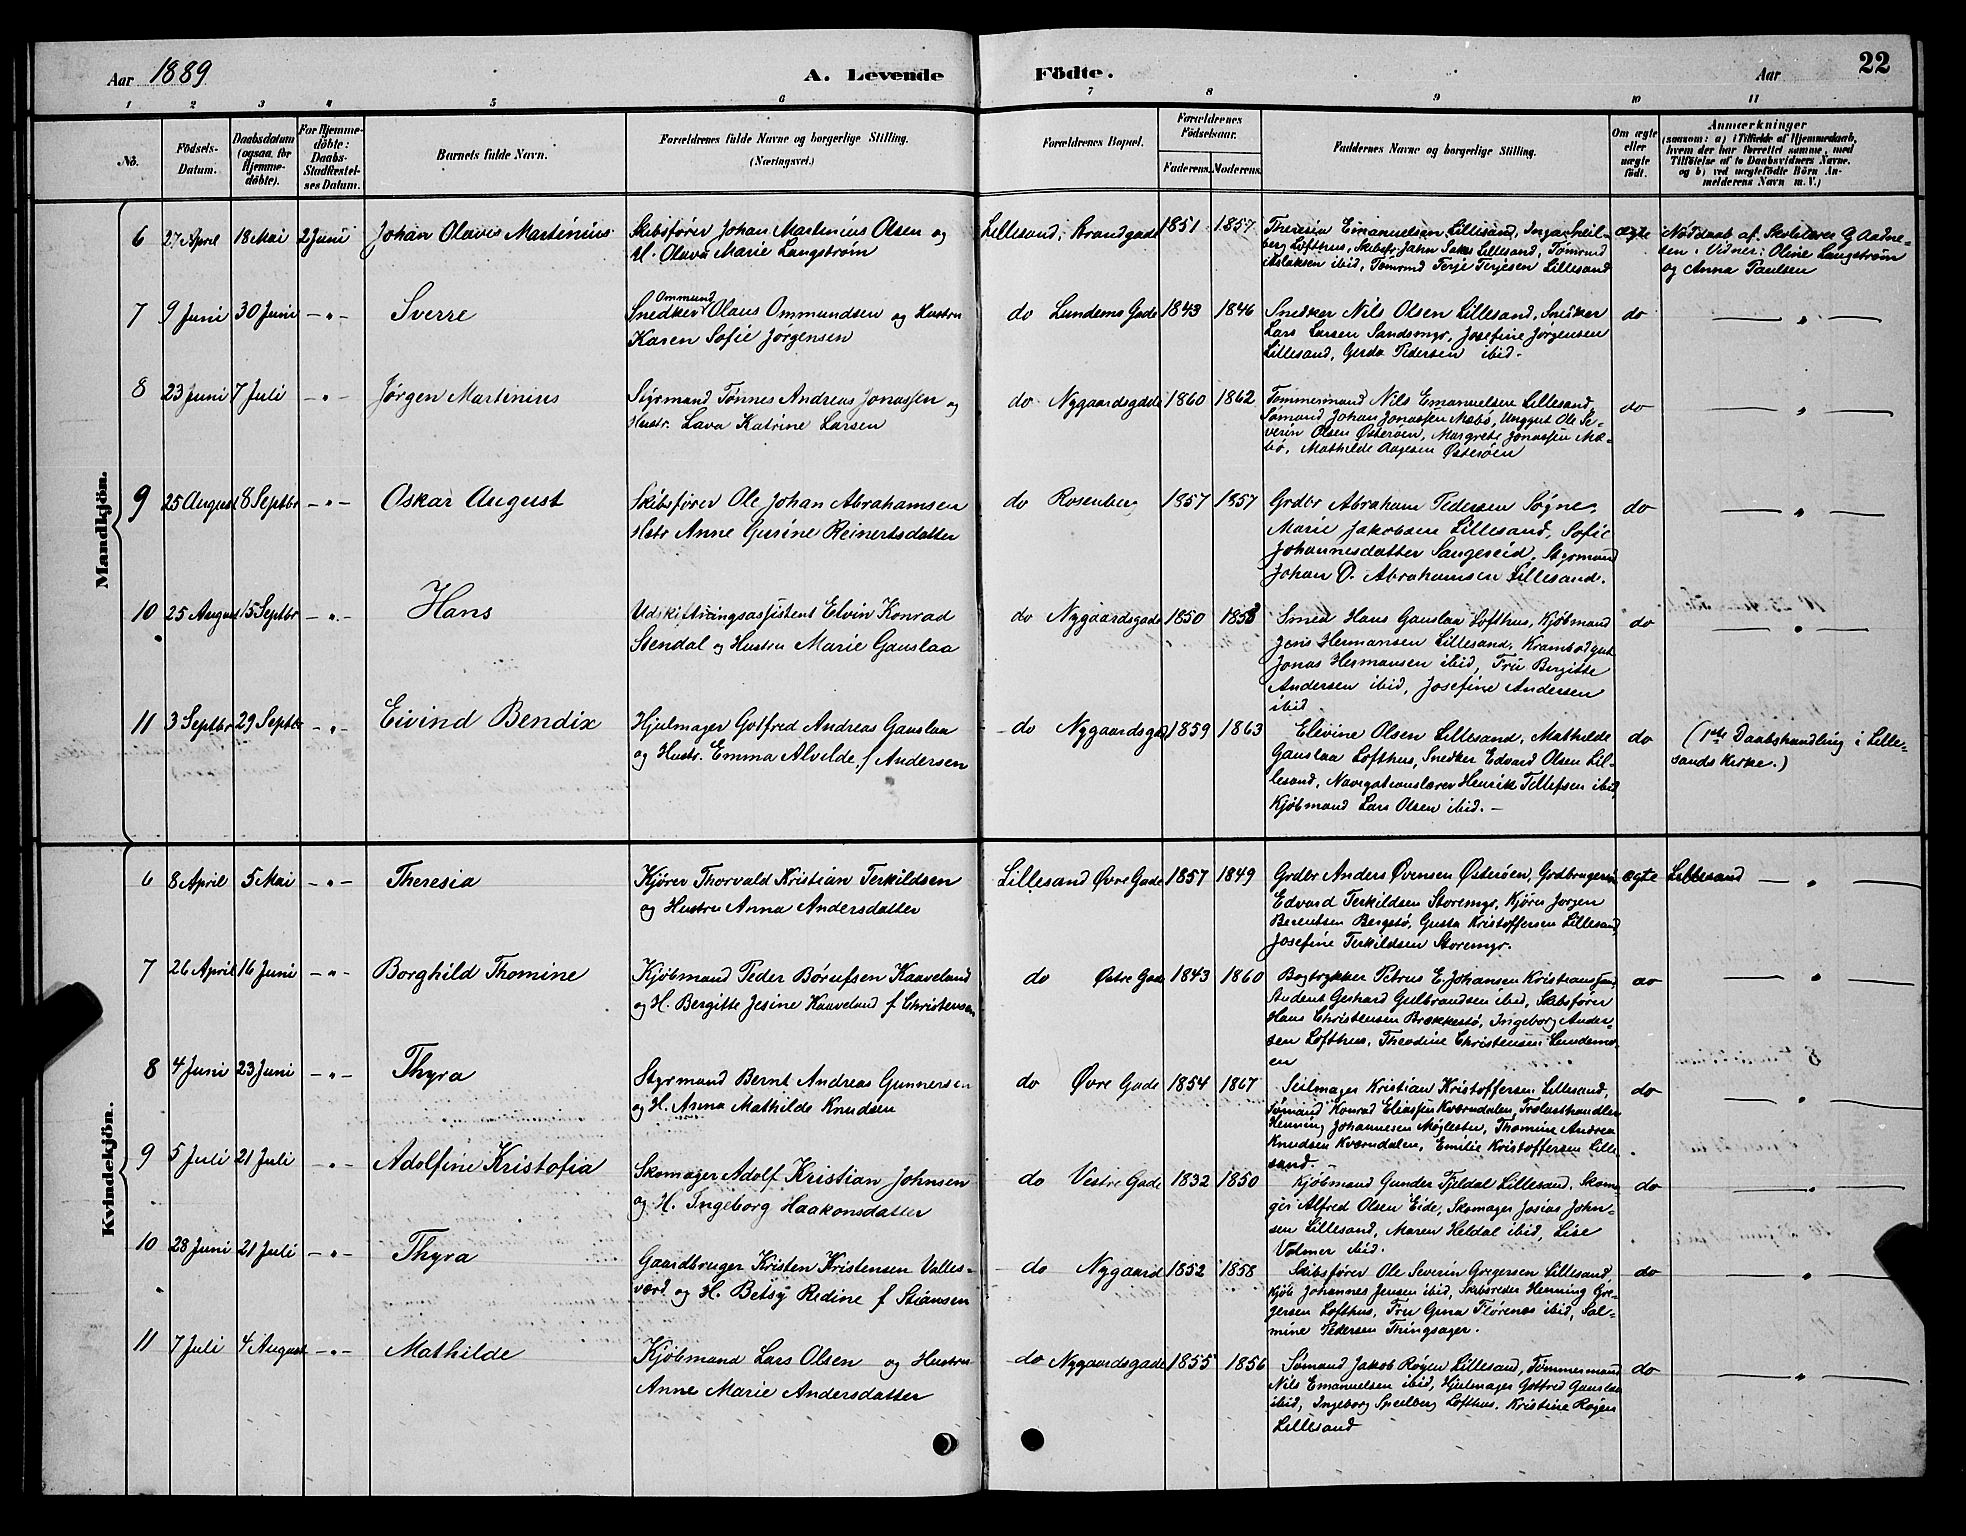 Aar 1889. A. Levende Födte. Aar 22
1 2 3 4 5 6 7 8 9 10 11
No. Födsels-Datum. Daabsdatum (ogsaa for Hjemmedöbte). For Hjemmedöbte: Daabs-Stadfæstelses Datum. Barnets fulde Navn. Forældrenes fulde Navne og borgerlige Stilling. (Næringsvei.) Forældrenes Bopæl. Forældrenes Födselsaar. Faderens. Moderens. Faddernes Navne og borgerlige Stilling. Om ægte eller uægte födt. Anmærkninger (saasom: a) i Tilfælde af Hjemmedaab, hvem der har forrettet samme, med Tilföielse af to Daabsvidners Navne, og b) ved uægtefödte Börn Anmelderens Navn m. V.)
Mandkjön.
6 27 April 18 Mai 2 Juni Johan Olavis Martinius
Skibsfører Johan Martinius Olsen og
H. Olava Marie Langstrøm
Lillesand, Strandgade 1851 1857
Theresia Emanuelsen Lillesand, Inga Heil-
berg Lofthus, Skibsfr. Jahn Saks Lillesand, Tømmd
Aslaksen ibid, Tømmd Terje Terjesen Lillesand
ægte
Nøddaab af Skolelærer G. Aadne-
sen. Vidner: Oline Langstrøm
og Anna Paulsen
7 9 Juni 30 Juni -"- Sverre
Ommund
Snedker Olaus Ommundsen og Hustru
Karen Sofie Jørgensen
do Lundemo Gade 1843 1846
Snedker Nils Olsen Lillesand, Snedker
Lars Larsen Sandsmyr, Josefine Jørgensen
Lillesand, Gerda Pedersen ibid.
do — " —
8 23 Juni 7 Juli -"- Jørgen Martinius
Styrmand Tønnes Andreas Jonassen og
Hustr. Lava Katrine Larsen
do Nygaardsgade 1860 1862
Tømmermand Nils Emanuelsen Lillesand,
Sømand Johan Jonassen Mæbø, Unggut Ole Se-
verin Olsen Østerøen, Margrete Jonassen Mæ-
bø, Mathilde Aagesen Østerøen
do — " —
9 25 August 8 Septbr -"- Oskar August
Skibsfører Ole Johan Abrahamsen
Hstr Anne Gurine Reinertsdatter
do Rosenberg 1857 1857
Grdbr Abraham Pedersen Søgne,
Marie Jakobsen Lillesand, Sofie
Johannesdatter Sangereid, Styrmand
Johan O. Abrahamsen Lillesand.
do — " —
10 25 August 15 Septbr -"- Hans
Udskiftningsassistent Elvin Konrad
Stendal og Hustru Marie Gauslaa
do Nygaardsgade 1850 1858
Smed Hans Gauslaa Lofthus, Kjøbmand
Jens Hermansen Lillesand, Krambodgut
Jonas Hermansen ibid, Fru Bergitte
Andersen ibid, Josefine Andersen
ibid
do — " —
11 3 Septbr 29 Septbr -"- Eivind Bendix
Hjulmager Gotfred Andreas Gauslaa
og Hustr. Emma Alvilde f Andersen
do Nygaardsgd. 1859 1863
Elevine Olsen Lillesand, Mathilde
Gauslaa Lofthus, Snedker Edvard Olsen Lil-
lesand, Navigationslærer Henrik Tellefsen ibid,
Kjøbmand Lars Olsen ibid. —
do
(1ste Daabshandling i Lille-
sands Kirke.)
Kvindekjön.
6 8 April 5 Mai -"- Theresia
Kjører Thorvald Kristian Terkildsen
og Hustru Anna Andersdatter
Lillesand Øvre Gade 1857 1849
Grdbr Anders Øvensen Østerøen, Grdbrugerin
Edvard Terkildsen Storemyr, Kjører Jørgen
Berentsen Bergstø, Gusta Kristoffersen Lillesand,
Josefine Terkildsen Storemyr.
ægte Lillesand — " —
7 26 April 16 Juni -"- Borghild Thomine
Kjøbmand Peder Børufsen Kaaveland
og H. Bergitte Jesine Kaaveland f Christensen
do Østre Gade 1843 1860
Bogtrykker Petrus E. Johansen Kristianssand,
Student Gerhard Gulbrandsen ibid, Skibsfører
Hans Christensen Brækkestø, Ingeborg Ander-
sen Lofthus, Theodine Christensen Lundemo-
en
do — " —
8 4 Juni 23 Juni -"- Thyra
Styrmand Bernt Andreas Gunnersen
og H. Anna Mathilde Knudsen
do Øvre Gade 1854 1867
Seilmager Kristian Kristoffersen Lillesand,
Sømand Konrad Eliassen Kværndalen, Trælasthandler
Henning Johannesen Møglestu, Thomine Andrea
Knudsen Kværndalen, Emilie Kristoffersen Lille-
sand.
do — " —
9 5 Juli 21 Juli -"- Adolfine Kristofia
Skomager Adolf Kristian Johnsen
og H. Ingeborg Haakonsdatter
do Vestre Gade 1832 1850
Kjøbmand Gunder Fjeldal Lillesand, Skoma-
ger Alfred Olsen Eide, Skomager Josias John-
sen Lillesand, Maren Heldal ibid, Lise
Volmer ibid.
do — " —
10 28 Juni 21 Juli -"- Thyra
Gaardbruger Kristen Kristensen Valles-
værd og H. Betsy Redine f Stiansen
do Nygaard 1852 1858
Skibsfører Ole Severin Gregersen Lillesand,
Kjøb. Johannes Jensen ibid, Skibsreder Henning Gre-
gersen Lofthus, Fru Gina Flørenæs ibid, Sal-
mine Pedersen Thingsager.
do — " —
11 7 Juli 4 August -"- Mathilde
Kjøbmand Lars Olsen og Hustru
Anne Marie Andersdatter
do Nygaardsgade 1855 1856
Sømand Jakob Røyen Lillesand, Tømmermand
Nils Emanuelsen ibid, Hjulmager Gotfred Gauslaa
ibid, Ingeborg Speilberg Lofthus, Kristine Røyen
Lillesand
do — " —